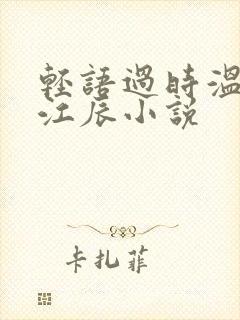 輕語過時溫
江辰小說
卡扎菲